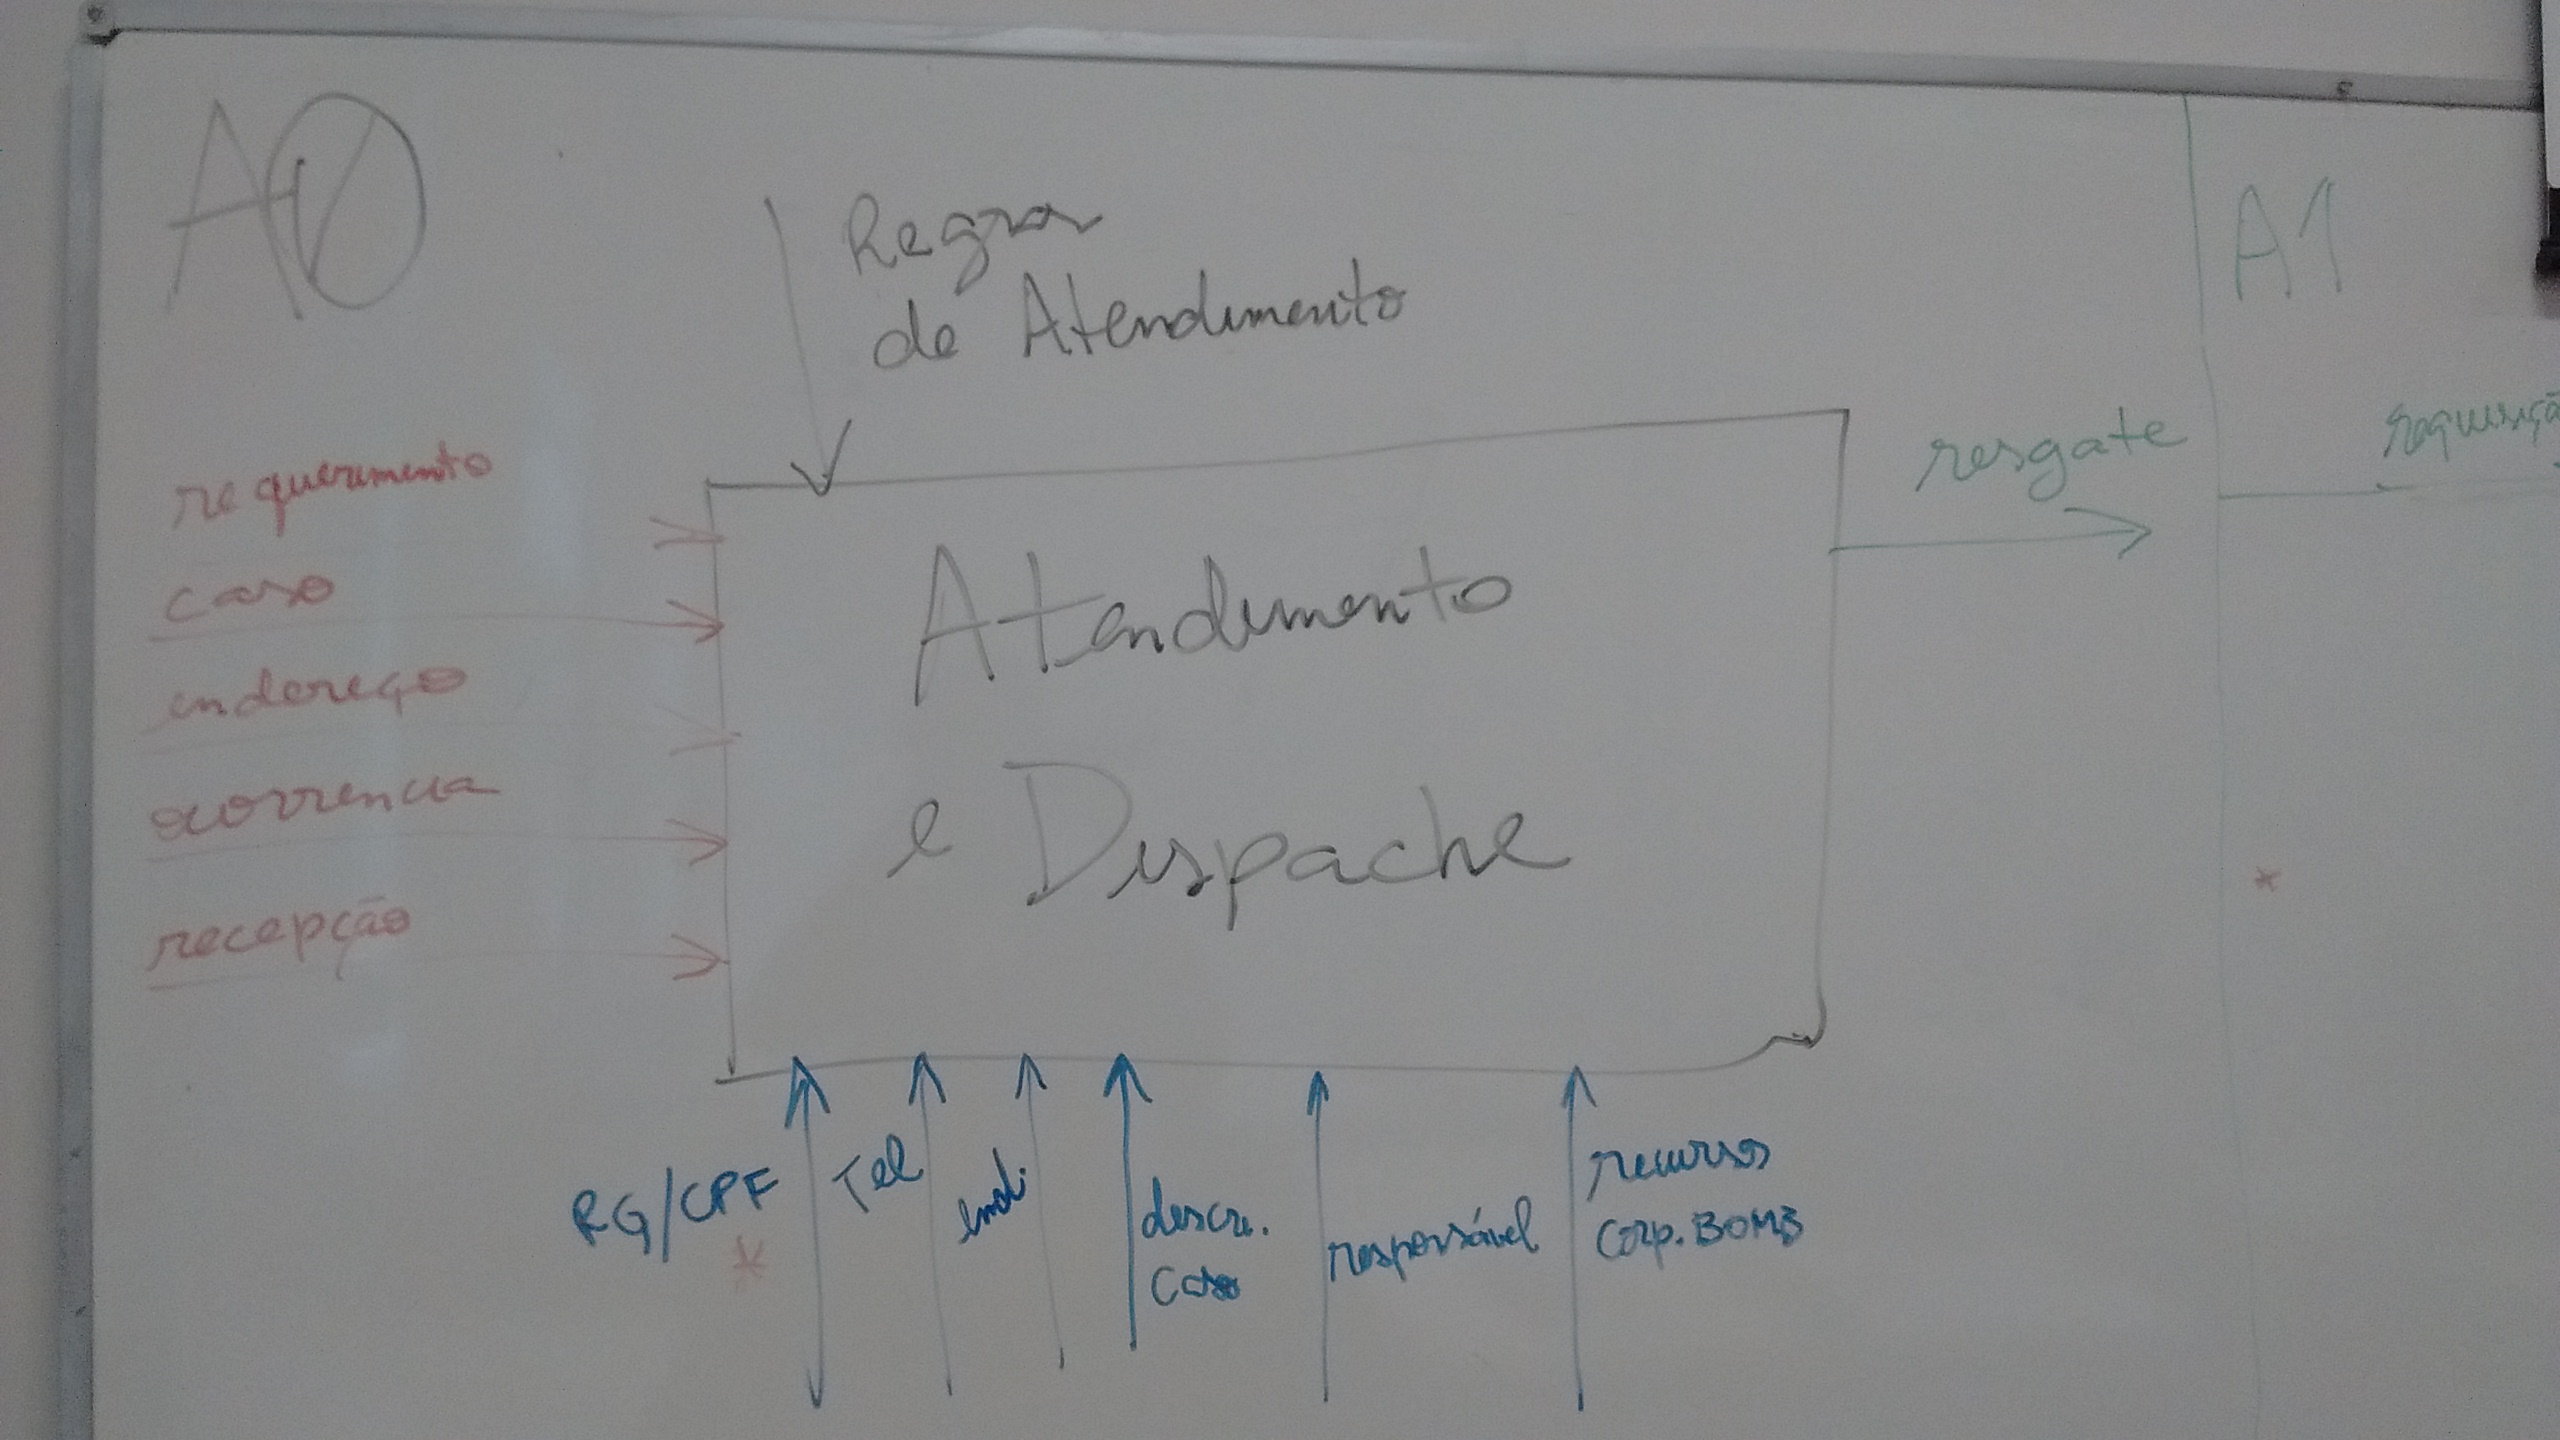 A0
Regras
de Atendimento
A1
requerimento
caso
endereço
ocorrencia
recepção
Atendimento
e Despache
resgate
requisiçã
RG/CPF
*
Tel
end.
descr.
Caso
responsável
recursos
Corp. BOMB
*